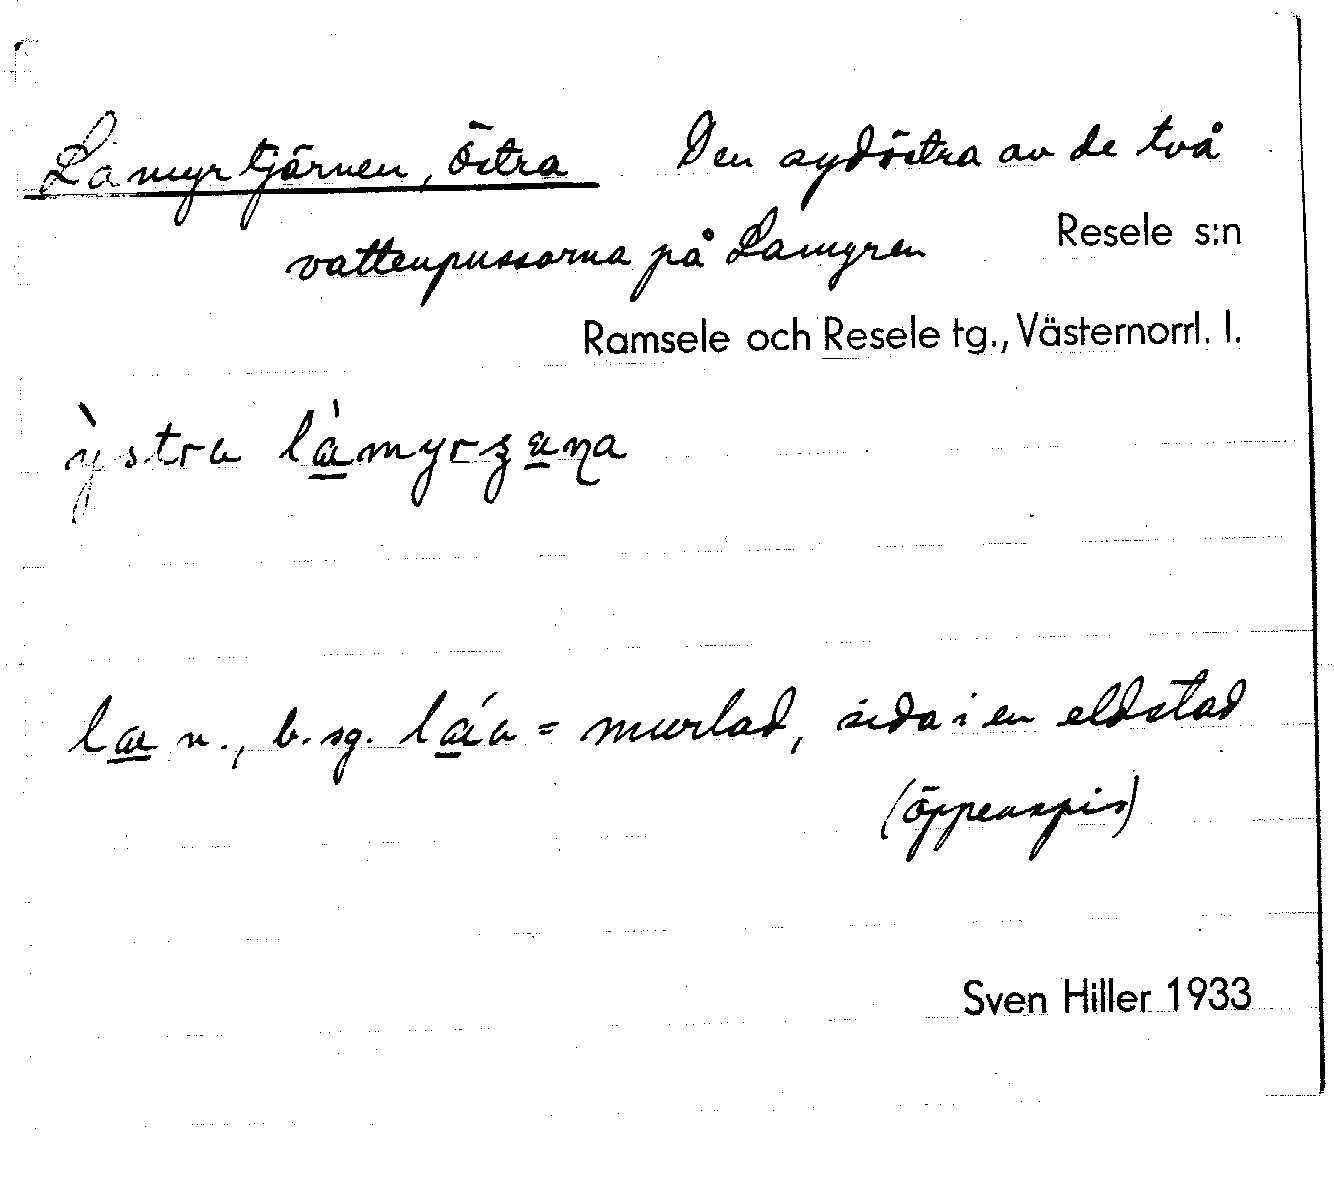 Lamyrtjärnen, östra Den sydöstra av de två
vattenpussarna på Lamyren
Resele s:n
Ramsele och Resele tg., Västernorrl. l.
la n., b. sg. láa = murlad, sida i en eldstad
(öppenspis)
Sven Hiller 1933